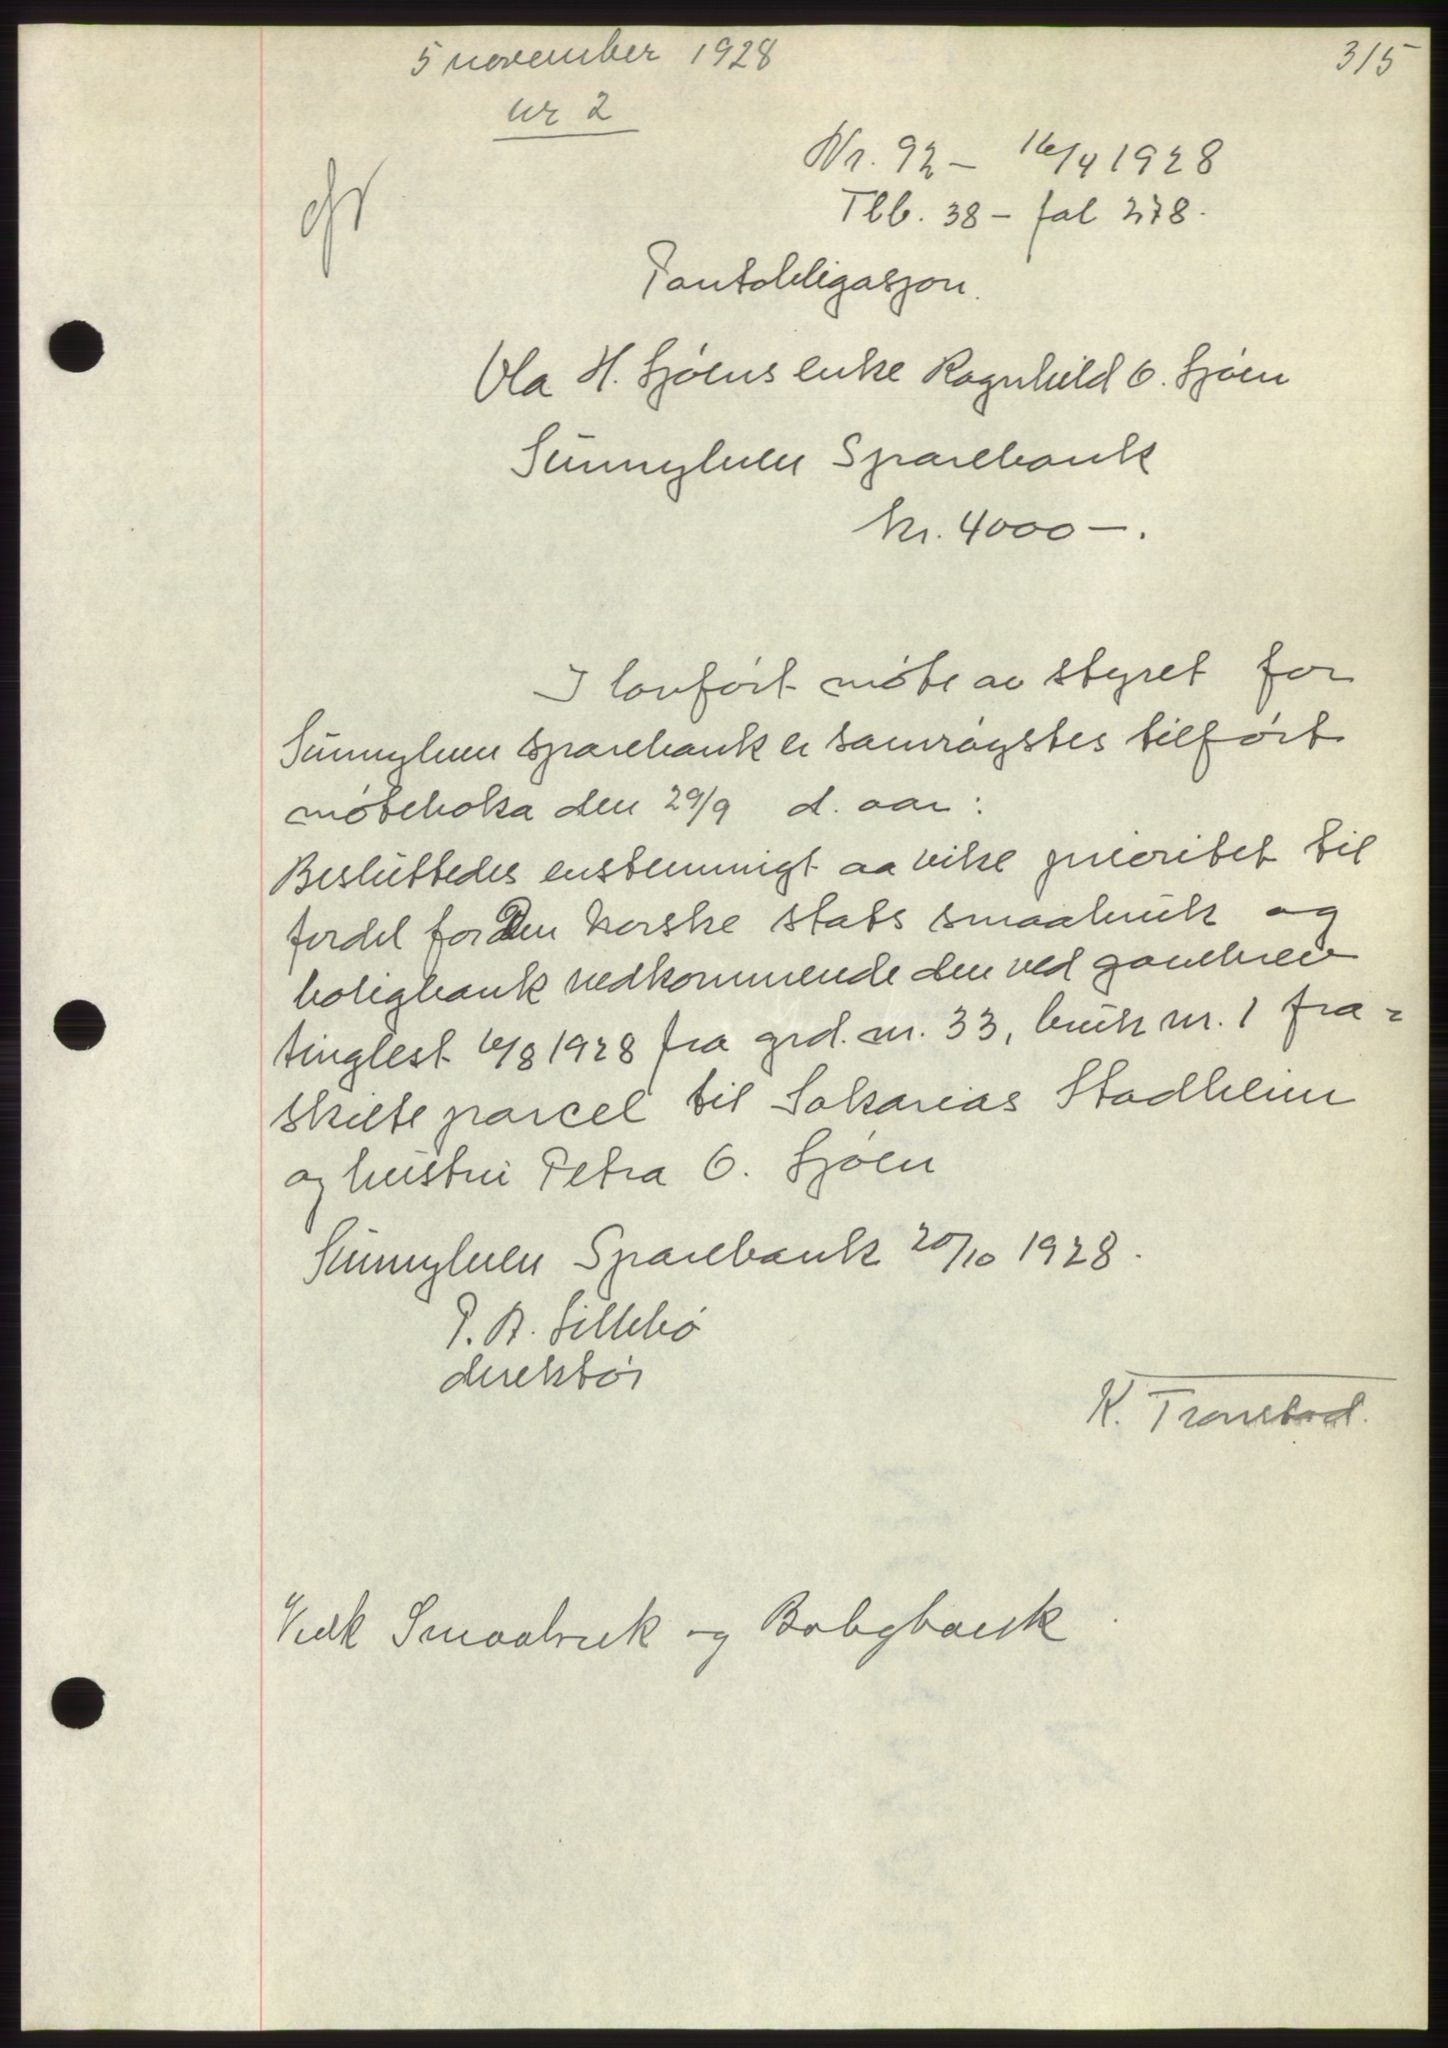 5 november 1928
315
nr 2
Nr. 92 - 16/4 1928
Tlb. 38 - fol 278.
Pantobligasjon.
Ola H. Sjøens enke Ragnhild O. Sjøen
Sunnylven Sparebank
kr. 4000 -.
I lovført møte av styret for
Sunnylven sparebank er samrøystes tilført
møteboka den 29/9 d. aar:
Besluttedes enstemmigt aa vike prioritet til
fordel for Den Norske stats smaabruk og
boligbank vedkommende den ved gavebrev
tinglest 16/8 1928 fra grd. nr. 33, bruk nr. 1 fra=
skilte parcel til Sakarias Stadheim
og hustru Petra O. Sjøen
Sunnylven Sparebank 20/10 1928.
P. A. Lillebø
direktør
K. Tronstad.
Vedk Smaabruk og Boligbank